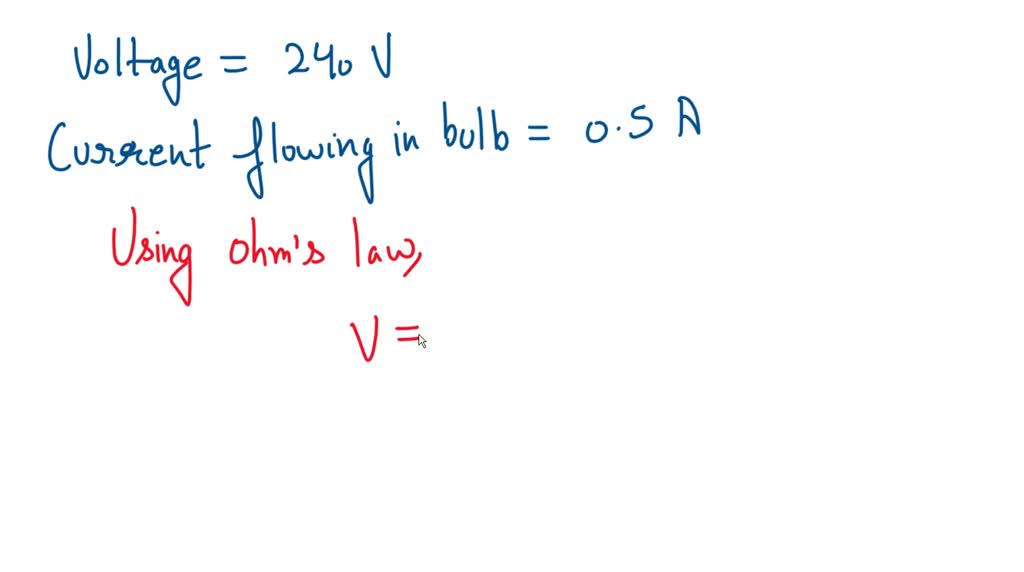 Voltage = 240 V
Current flowing in bulb = 0.5 A
Using ohm's law,
V =